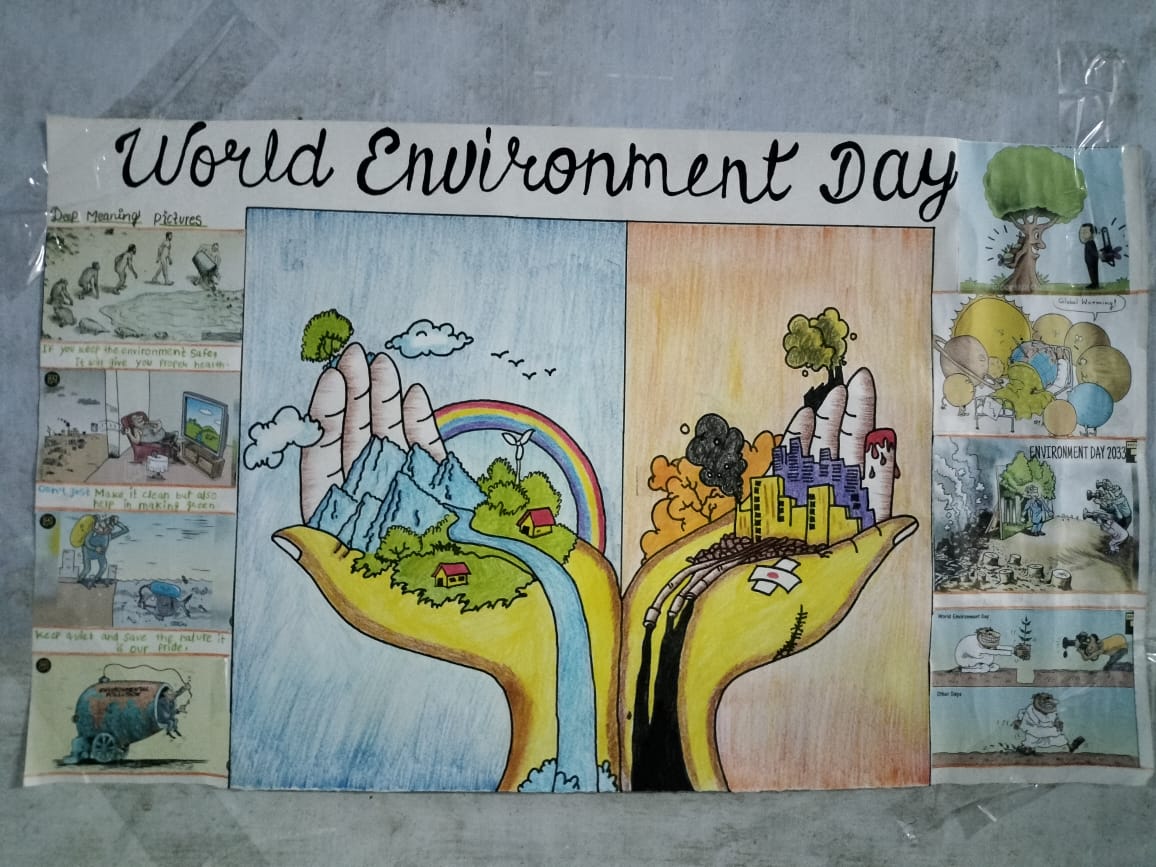 World Environment Day
Deep Meaning Pictures
If you keep the environment safe,
It will give you proper health.
Don't just Make it clean but also
help in making green
Keep quiet and save the nature it
is our pride.
ENVIRONMENTAL
POLLUTION
Global Warming!
ENVIRONMENT DAY 2033
World Environment Day
Other Days